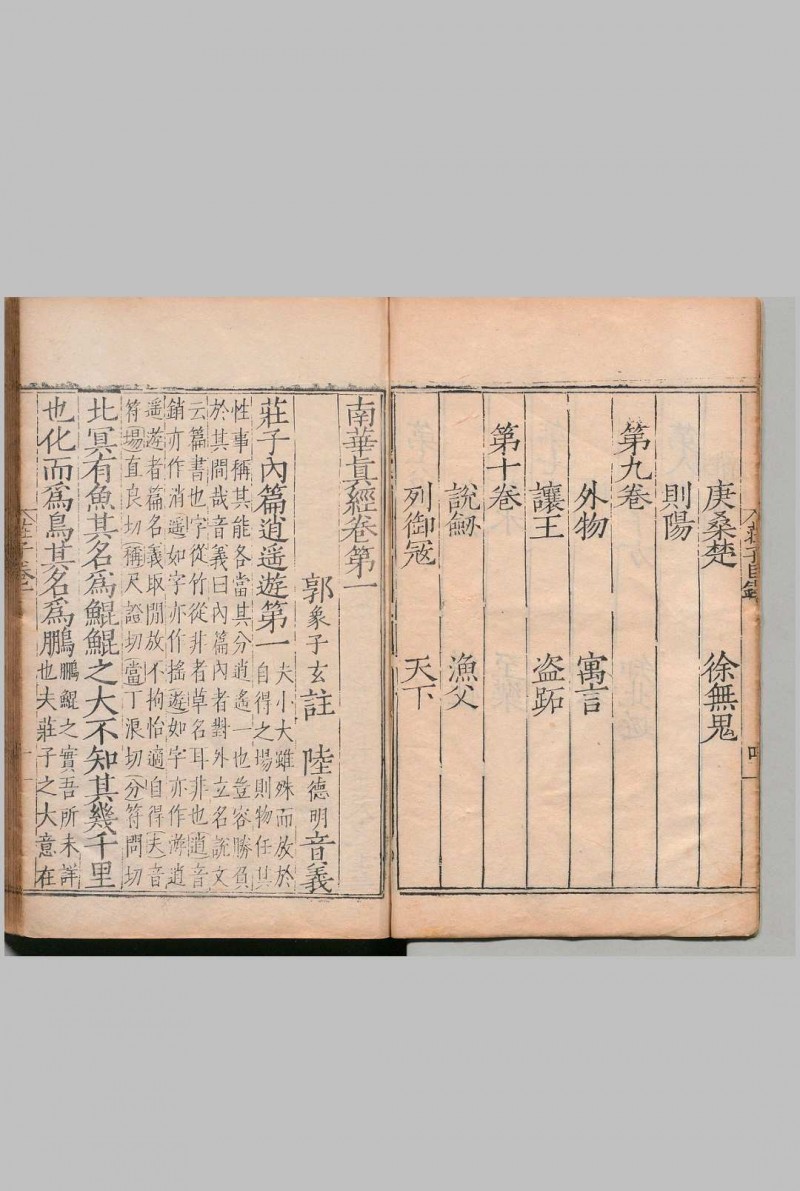 庚桑楚 徐無鬼
則陽
第九卷
外物 寓言
讓王 盜跖
第十卷
說劒 漁父
列御寇 天下
南華眞經卷第一
郭象子玄註 陸德明音義
莊子內篇逍遥遊第一
夫小大雖殊而放於
自得之場則物任其
性事稱其能各當其分逍遙一也豈容勝負
於其間哉音義曰內篇內者對外立名說文
云篇書也字從竹從非者草名耳非也逍音
銷亦作消遥如字亦作摇遊如字亦作游逍
遥遊者篇名義取閒放不拘怡適自得夫音
符場直良切稱尺證切當丁浪切分符問切
北冥有魚其名爲鯤鯤之大不知其幾千里
也化而爲鳥其名爲鵬
鵬鯤之實吾所未詳
也夫莊子之大意在